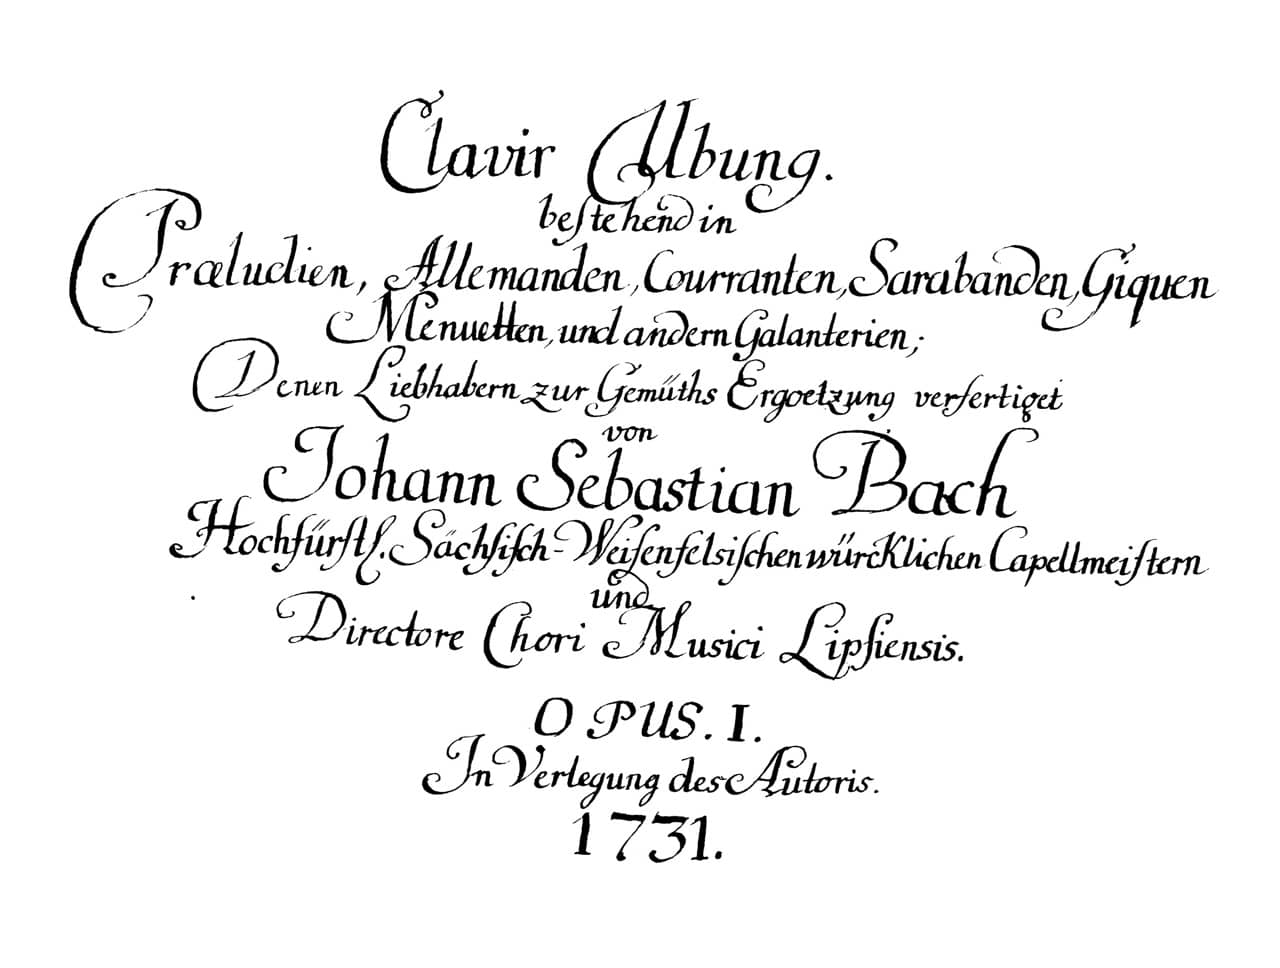 Clavir Ubung.
beſtehend in
Præludien, Allemanden, Courranten, Sarabanden, Giquen
Menuetten, und andern Galanterien;
Denen Liebhabern zur Gemüths Ergoetzung verfertiget
von
Johann Sebastian Bach
Hochfürſtl. Sächſiſch-Weiſenfelsiſchen würcklichen Capellmeiſtern
und
Directore Chori Musici Lipſiensis.
OPUS. I.
In Verlegung des Autoris.
1731.